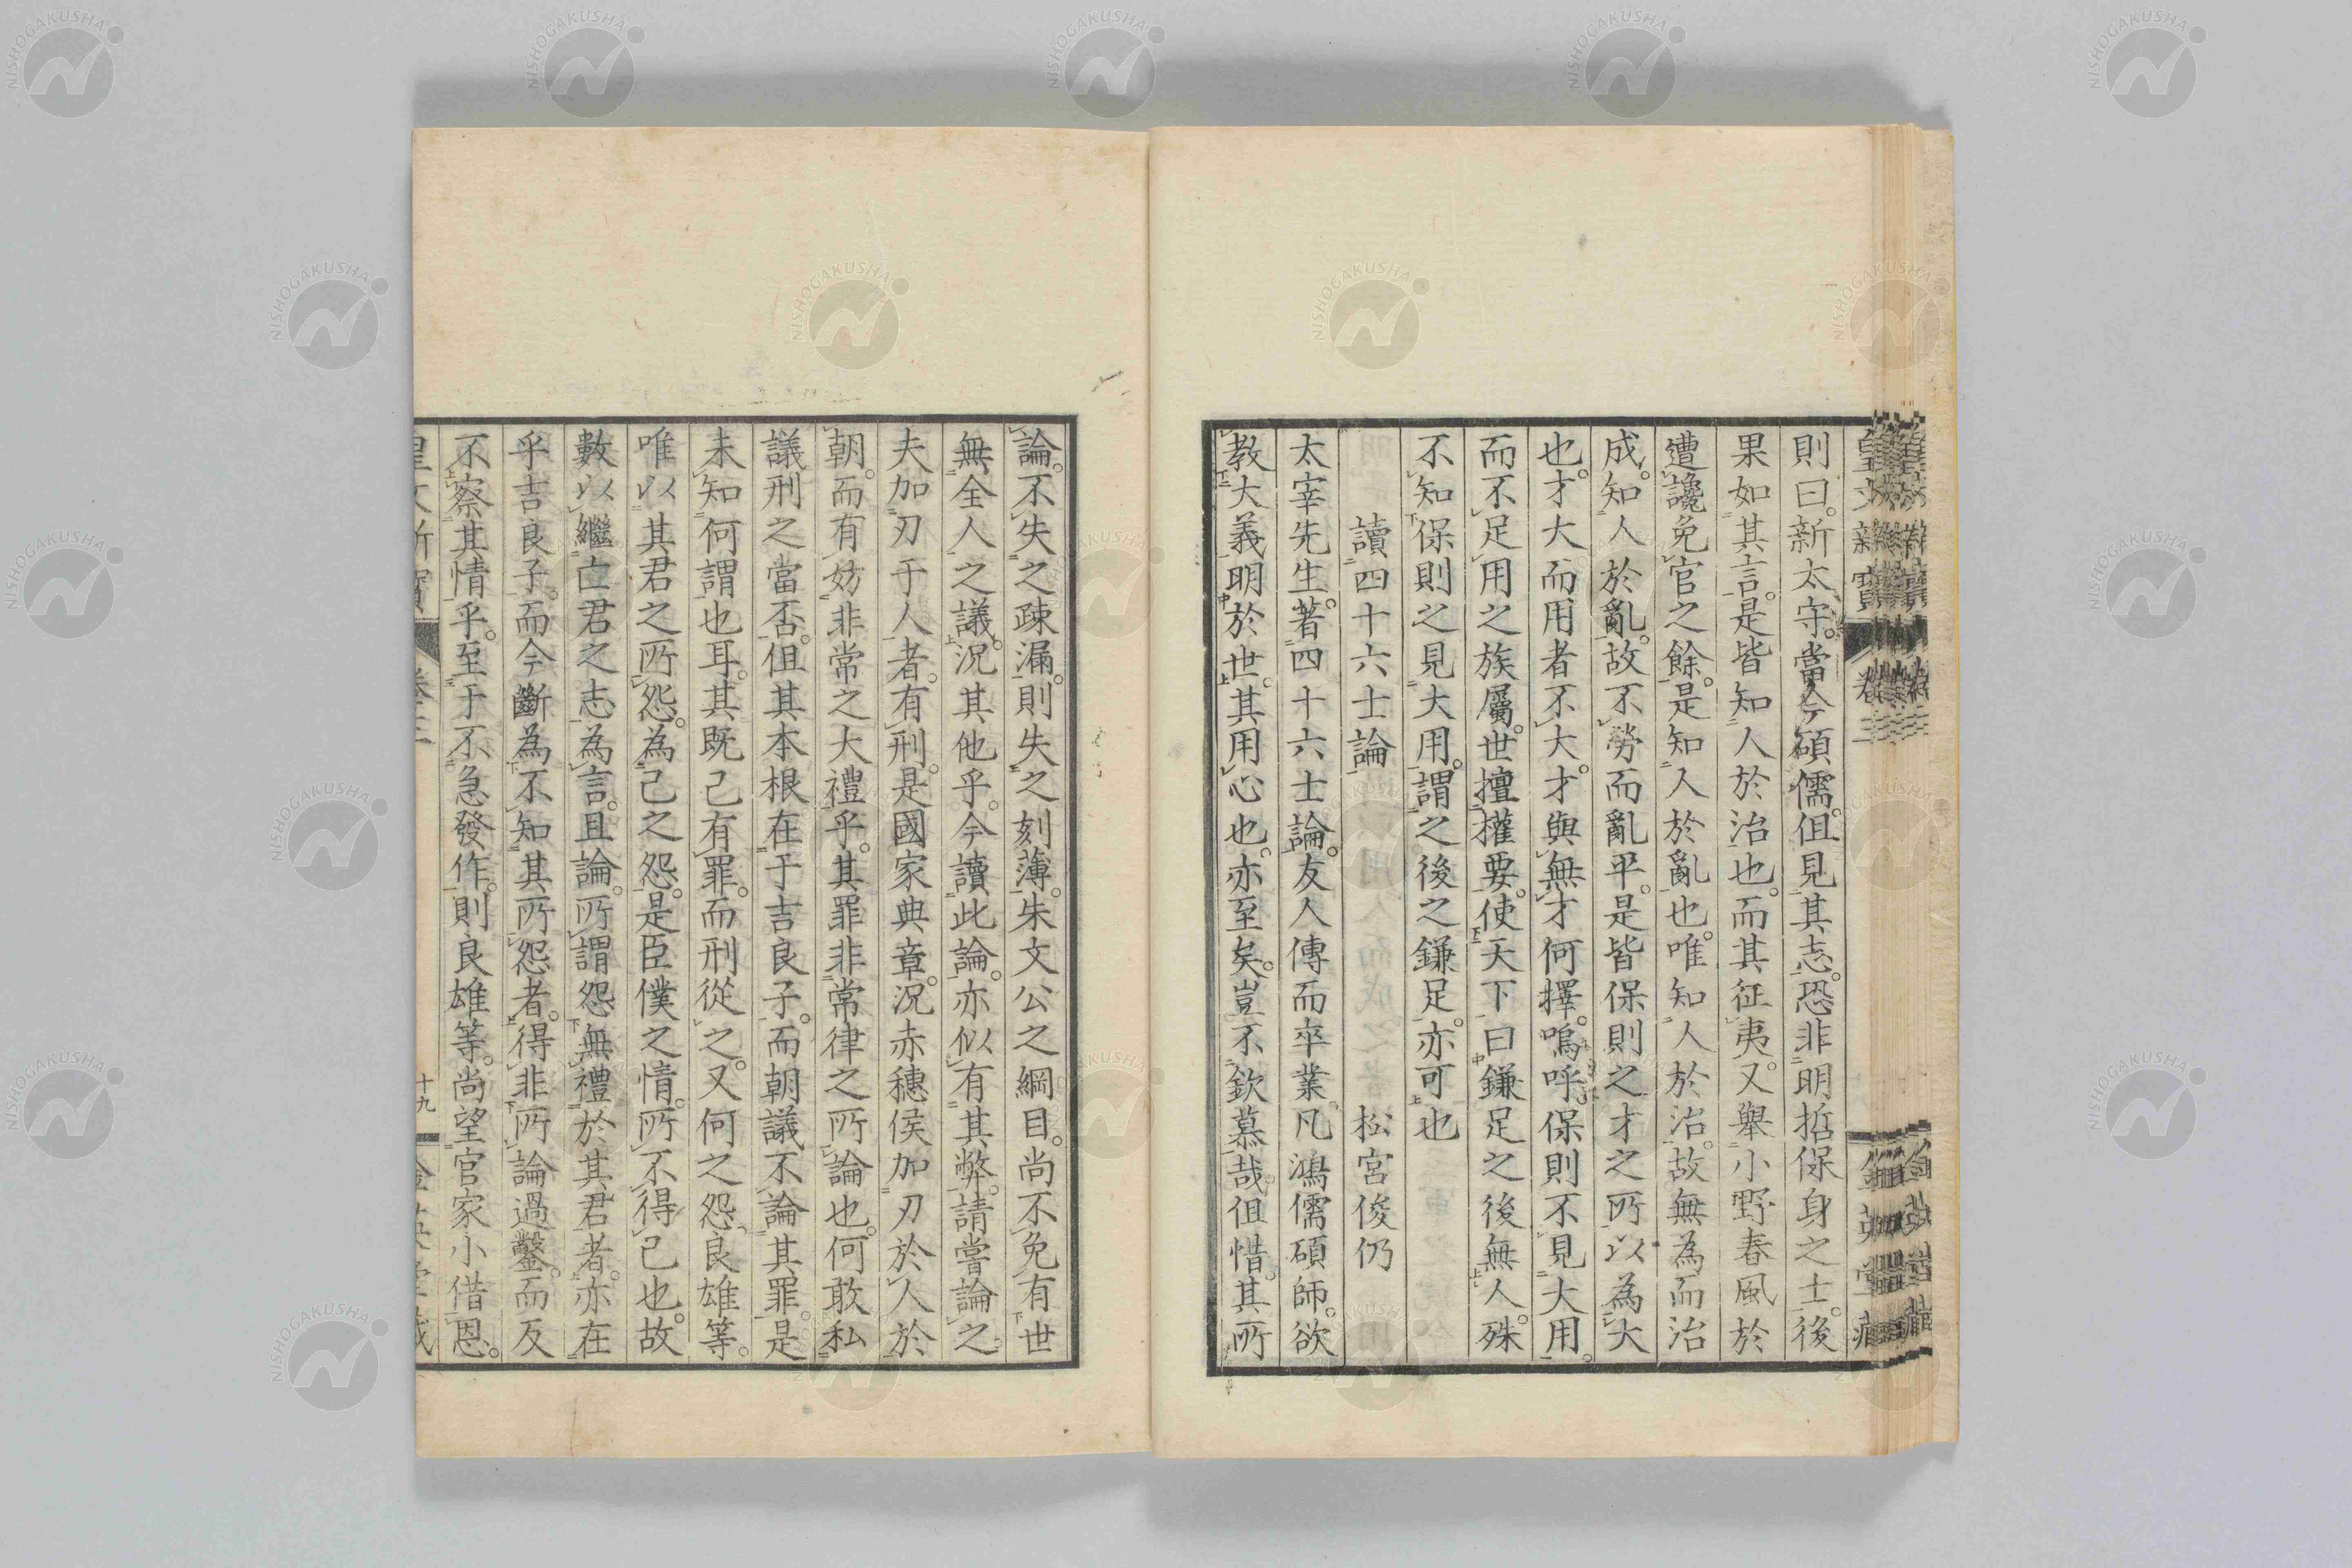 則曰。新太守。當今碩儒。但見其志。恐非明哲保身之士。後
果如其言。是皆知人於治也。而其征夷。又舉小野春風於
遭讒免官之餘。是知人於亂也。唯知人於治。故無為而治
成。知人於亂。故不勞而亂平。是皆保則之才之所以為大
也。才大而用者不大。才與無才何擇。嗚呼。保則不見大用。
而不足用之族屬。世擅權要。使天下曰鎌足之後無人。殊
不知保則之見大用。謂之後之鎌足。亦可也
讀四十六士論 松宮俊仍
太宰先生。著四十六士論。友人傳而卒業。凡鴻儒碩師。欲
教大義明於世。其用心也。亦至矣。豈不欽慕哉。但惜。其所
論。不失之疎漏。則失之刻薄。朱文公之綱目。尚不免有世
無全人之議。況其他乎。今讀此論。亦似有其弊。請嘗論之
夫加刃于人者。有刑。是國家典章。況赤穗侯加刃於人於
朝。而有妨非常之大禮乎。其罪非常律之所論也。何敢私
議刑之當否。但其本根在于吉良子。而朝議不論其罪。是
未知何謂也耳。其既己有罪。而刑從之。又何之怨。良雄等。
唯以其君之所怨。為己之怨。是臣僕之情。所不得己也。故
數以繼亡君之志為言。且論。所謂怨無禮於其君者。亦在
乎吉良子。而今斷為不知其所怨者。得非所論過鑿。而反
不察其情乎。至于不急發作。則良雄等。尚望官家小借恩。
皇文新寶 卷三 十九 金英堂藏